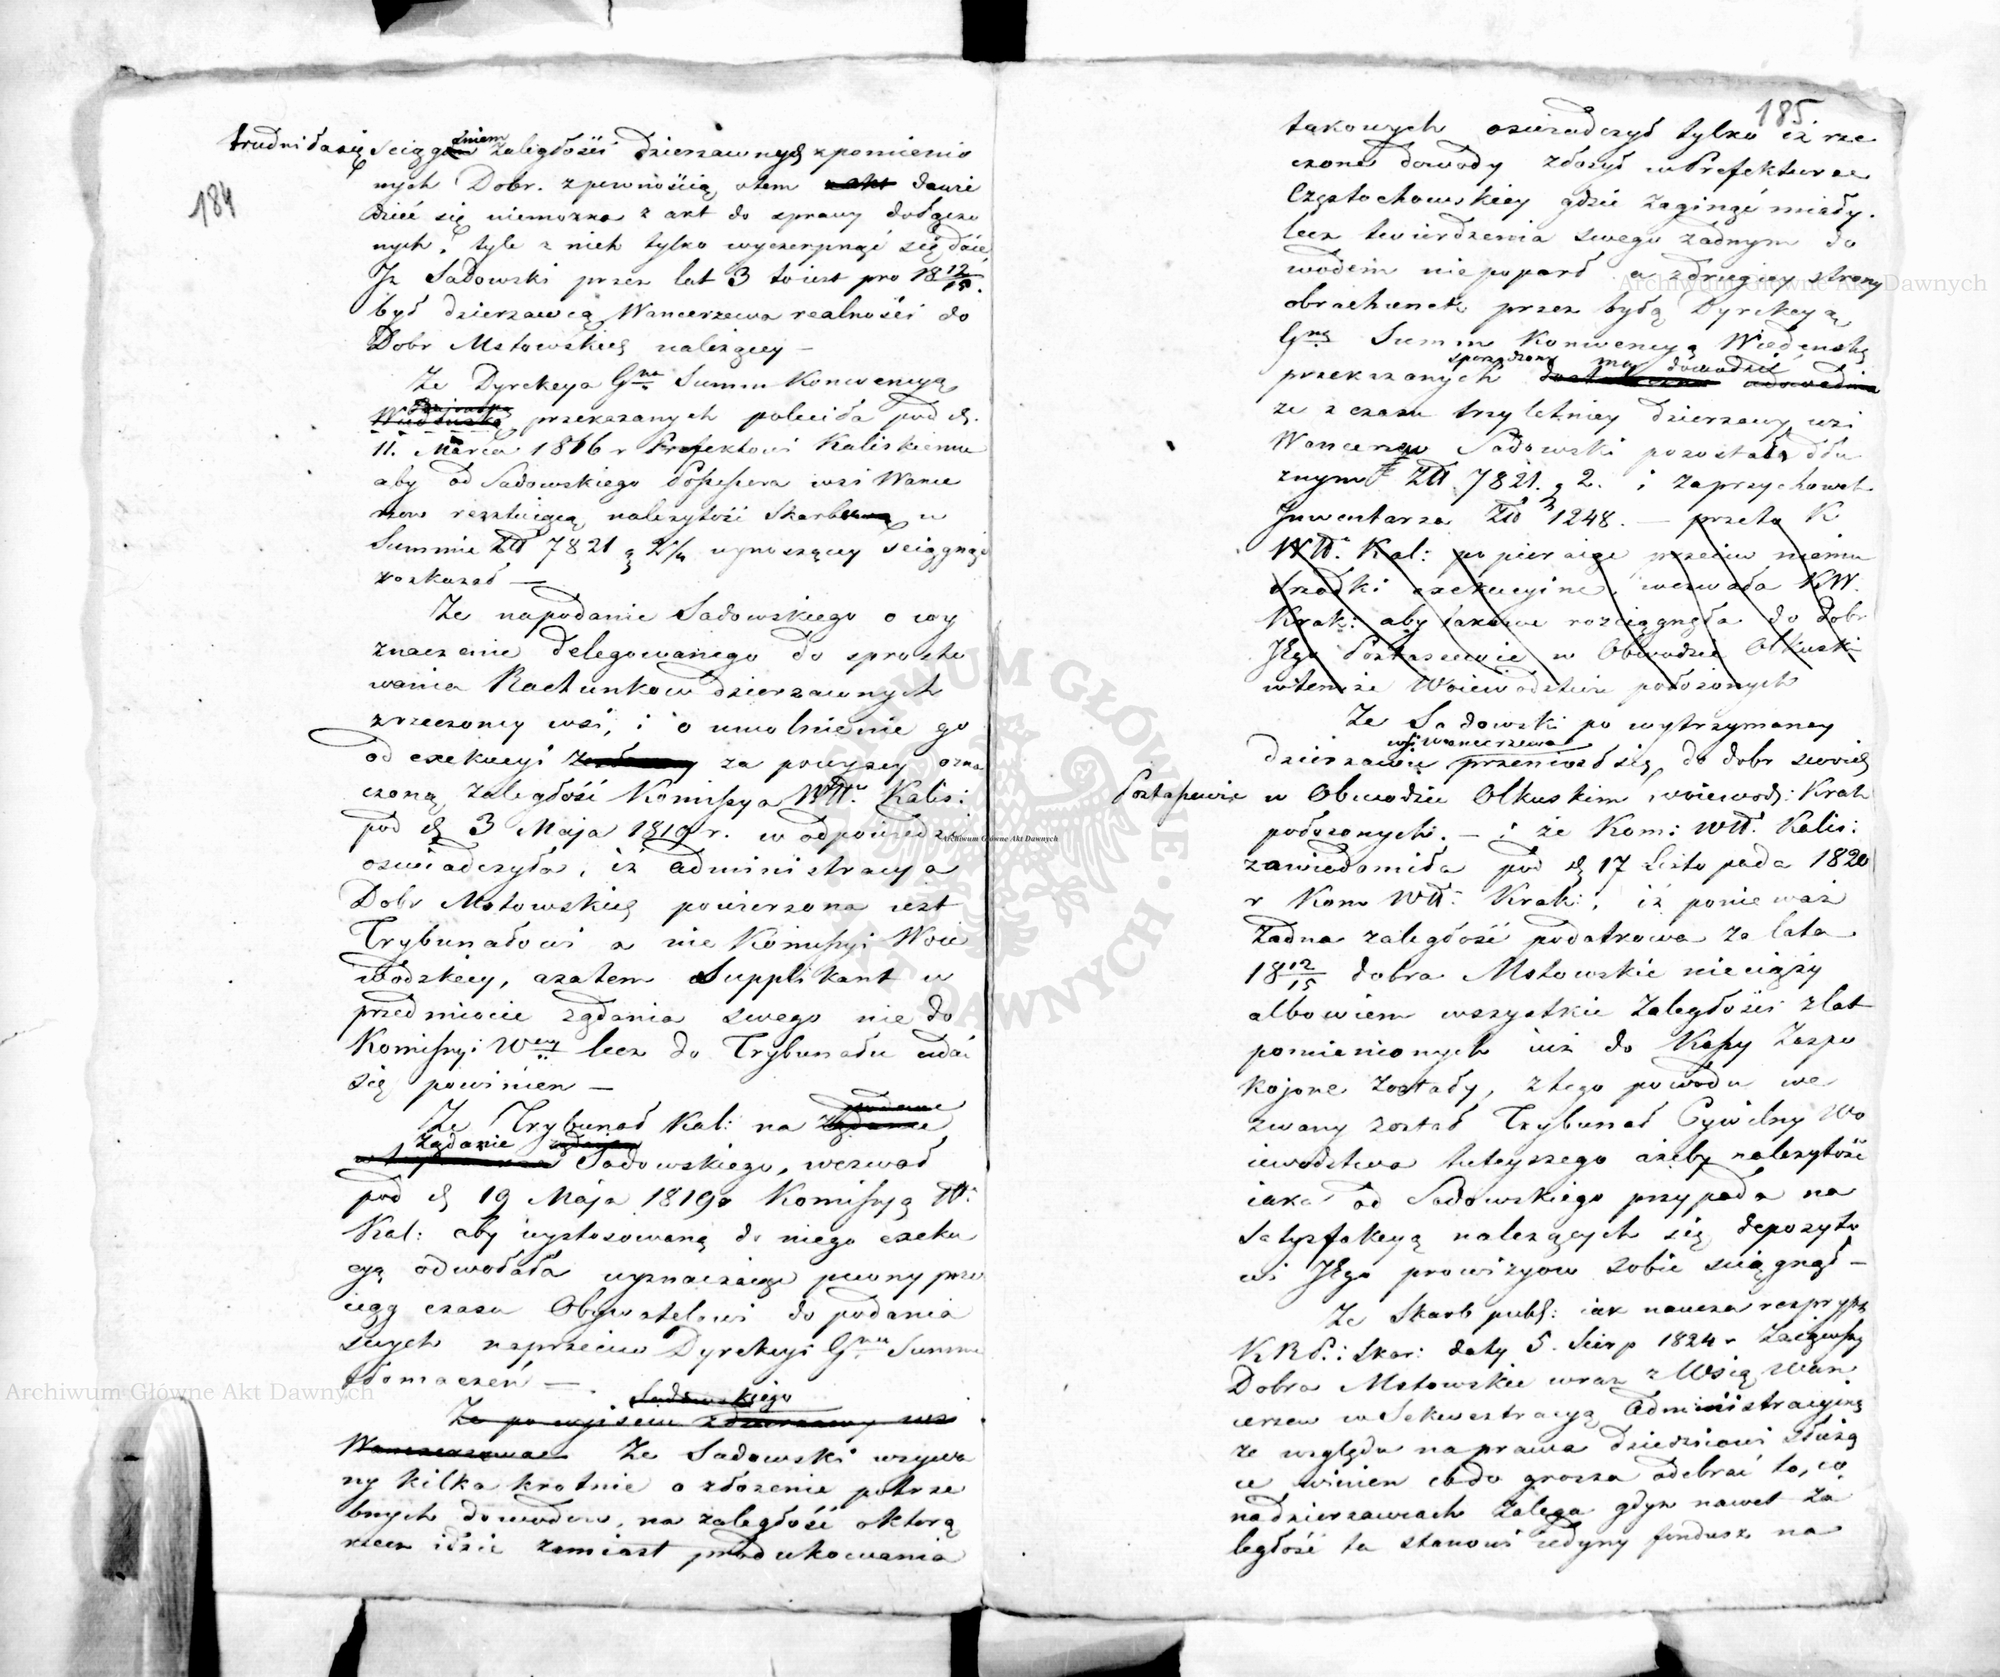 184
trudniła się ściąganiem zaległości dzierzawnych z pomienio
nych Dobr. z pewnością o tem dowie
dzieć się niemożna z akt do sprawy dołączo
nych, tyle z nich tylko wyczerpnąć się daie
Iż Sadowski przez lat 3 to iest pro 18 12/15.
był dzierzawcą Wancerzewa realności do
Dobr Mstowskich należącey —
Że Dyrekcya Gna Summ Konwencyą
przekazanych poleciła pod d.
11. Marca 1816 r Prefektowi Kaliskiemu
aby od Sadowskiego Possessora wsi Wance
rzow należytość Skarbową w
Summie Złt 7821 g 2 wynoszącey ściągnąć
rozkazał —
Że na podanie Sadowskiego o wy
znaczenie delegowanego do sprosto
wania Rachunkow dzierzawnych
z rzeczoney wsi, i o uwolnienie go
od exekucyi za powyzey ozna
czoną zaległość Kommissya Wtt. Kalis:
pod d 3 Maja 1819 r. w odpowiedzi
oswiadczyła, iż administracya
Dobr Mstowskich powierzona iest
Trybunałowi a nie Kommissyi Woie
wodzkiey, azatem Supplikant w
przedmiocie ządania swego nie do
Komissyi Wey lecz do Trybunału udać
się powinien —
Że Trybunał Kal: na
ządanie Sadowskiego, wezwał
pod d 19 Maja 1819 Komissyą W.
Kal: aby wystosowaną do niego exeku
cyą odwołała wyznaczaiąc pewny prze
ciąg czasu Obywatelowi do podania
swych naprzeciw Dyrekcyi Gney Summ
tłomaczeń —
Sadowskiego
Że po wyjsciu z dzierzawy wsi
Że Sadowski wzywa
ny kilka krotnie o złożenie potrze
bnych dowodow, na zaległość o ktorą
rzecz idzie zamiast produkowania
185
takowych oswiadczył tylko iż rze
czone dowody złożył w Prefekturze
Częstochowskiey gdzie zaginąć miały.
lecz twierdzenia swego żadnym do
wodem niepoparł a z drugiey strony
obrachunek przez byłą Dyrekcyą
Gną Summ Konwencyą Wiedenską
przekazanych sporządzony ma dowodzić
ze z czasu trzyletniey dzierzawy wsi
Wancerzow Sadowski pozostał dłu
znym Złt 7821. g 2. i za przychowek
Inwentarza Złt 1248. — przeto K
Wtt. Kal: popieraiąc przeciw niemu
srzodki exekucyine, wezwała KW.
Krak: aby takowe rozciągnęła do dobr
Jego w Obwodzie Olkuski
w temże Woiewodztwie położonych
Że Sadowski po wytrzymaney
wsi Wancerzewa
dzierzawie przeniosł się do dobr swoich
w Obwodzie Olkuskim, woiewodz: Krak
położonych. — i że Kom: Wtt. Kalis:
zawiedomiła pod d 17 Listopada 1820
r Kom Wtt. Krak:, iż ponieważ
żadna zaległość podatkowa za lata
18 12/15 dobra Mstowskie nie ciąży
albowiem wszystkie zaległości z lat
pomienionych iuż do Kassy zaspo
kojone zostały, z tego powodu we
zwany został Trybunał Cywilny Wo
iewodztwa tuteyszego ażeby należytość
iaka od Sadowskiego przypada na
satysfakcyą należących się depozyto
wi Jego prowizyow sobie sciągnął —
Że Skarb publ: iak naucza reskrypt
KRP.: Skar: daty 5. Sierp 1824 r zaiąwszy
Dobra Mstowskie wraz z Wsią Wan
cerzew w Sekwestracyą Administracyiną
ze względu na prawa dziedzicowi służą
ce winien co do grosza odebrać to, co
na dzierzawcach zalega gdyz nawet za
ległość ta stanowi iedyny fundusz na
Archiwum Główne Akt Dawnych
Archiwum Główne Akt Dawnych
Archiwum Główne Akt Dawnych
ARCHIWUM GŁÓWNE AKT DAWNYCH